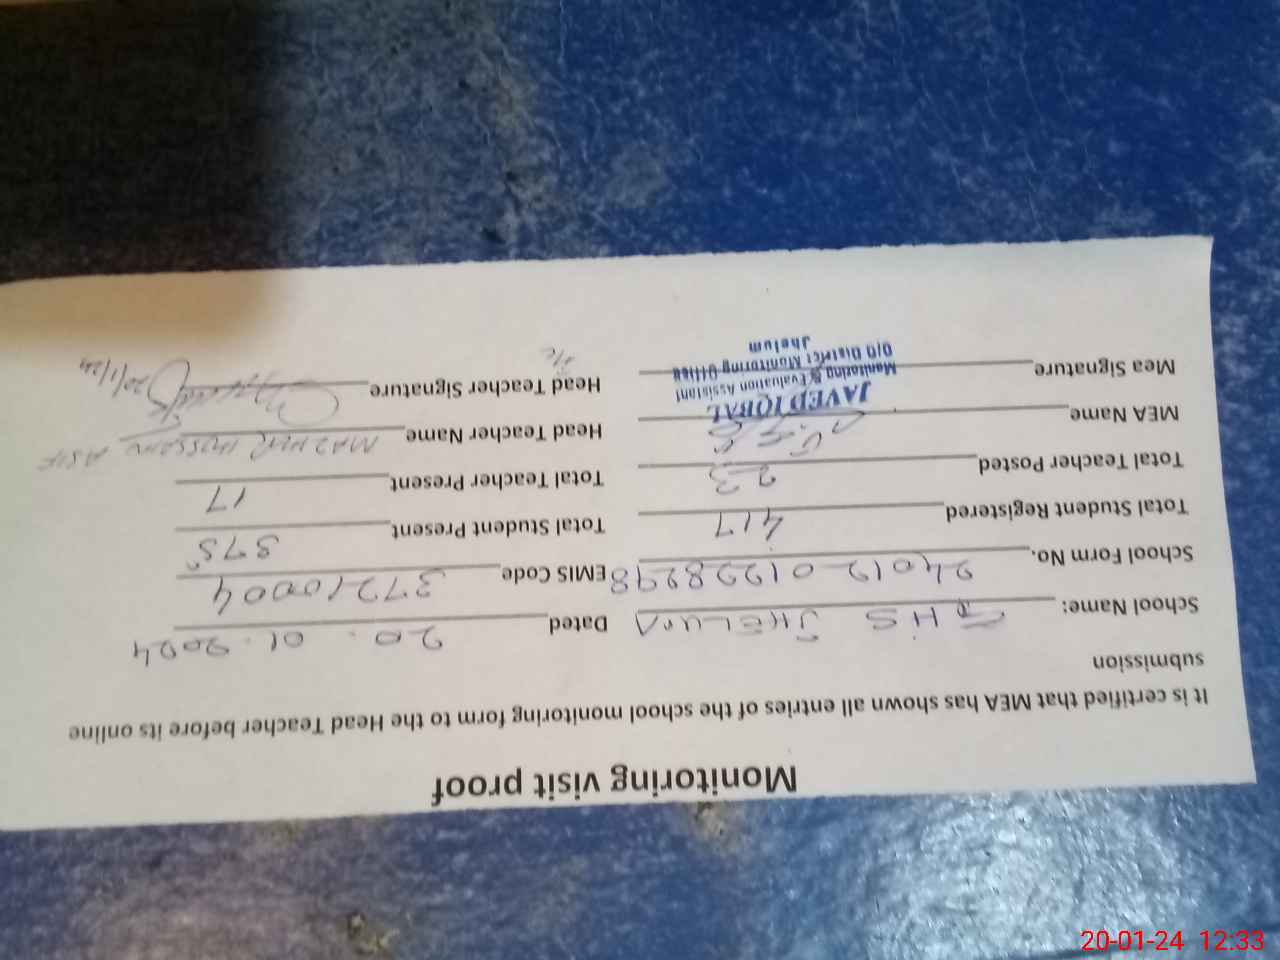 Monitoring visit proof
It is certified that MEA has shown all entries of the school monitoring form to the Head Teacher before its online
submission
School Name: GHS JHELUM Dated 20.01.2024
School Form No. EMIS Code 37210004
Total Student Registered 417 Total Student Present 375
Total Teacher Posted 23 Total Teacher Present 17
MEA Name Head Teacher Name MAZHAR HUSSAIN ASIF
JAVED IQBAL
Monitoring & Evaluation Assistant
O/O District Monitoring Office
Jhelum
Mea Signature Head Teacher Signature 20/1/24
20-01-24 12:33